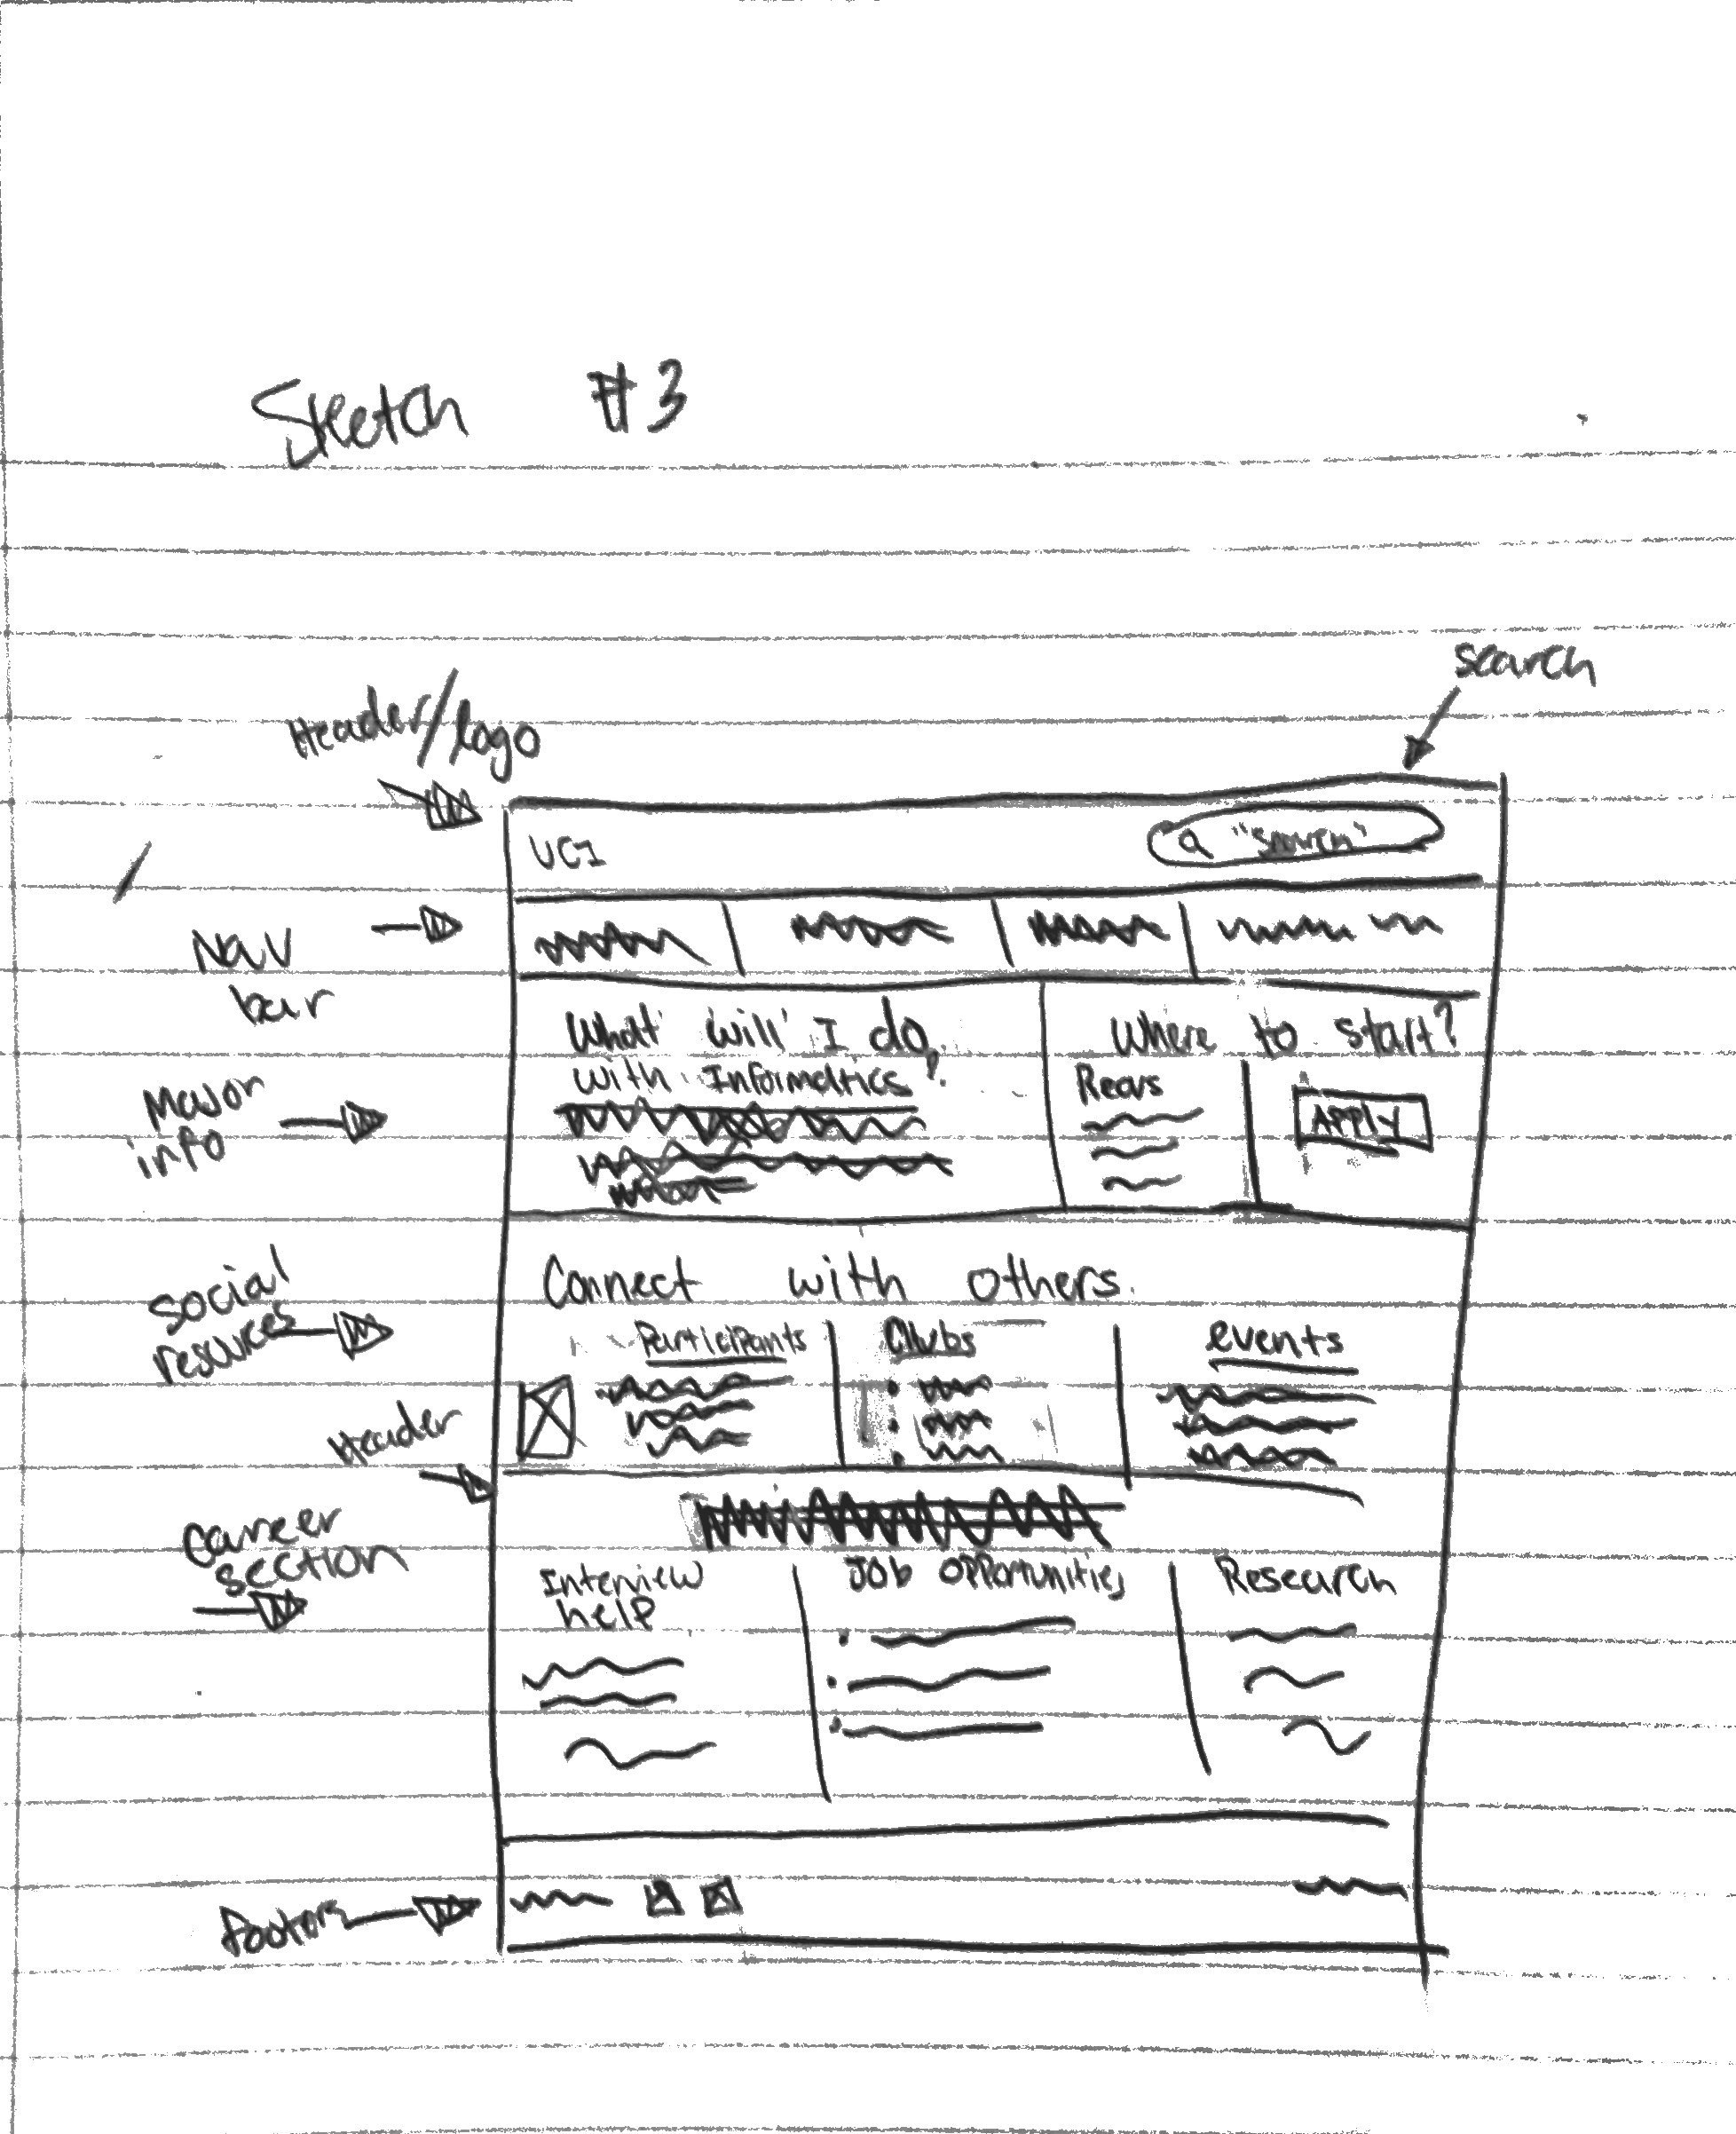 Sketch #3
search
Header/logo
UCI
"search"
Nav
bar
What will I do
with Informatics?
Where to start?
Major
info
Reqs
APPLY
Social
resources
Connect with others.
Participants
Clubs
events
Header
career
section
Interview
help
Job opportunities
Research
footers